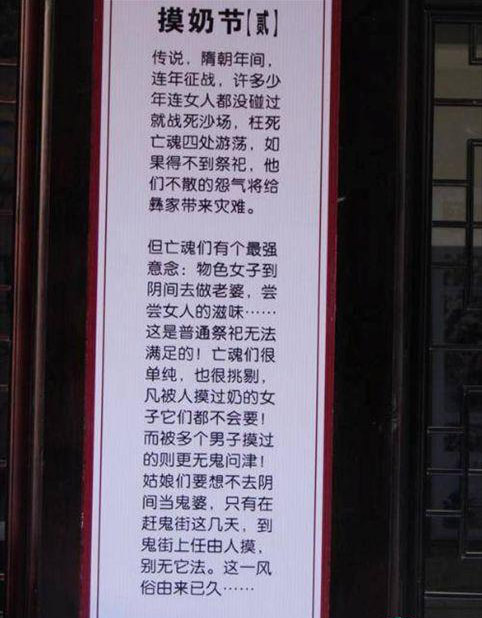 摸奶节[贰]
传说，隋朝年间，
连年征战，许多少
年连女人都没碰过
就战死沙场，枉死
亡魂四处游荡，如
果得不到祭祀，他
们不散的怨气将给
彝家带来灾难。
但亡魂们有个最强
意念：物色女子到
阴间去做老婆，尝
尝女人的滋味……
这是普通祭祀无法
满足的！亡魂们很
单纯，也很挑剔，
凡被人摸过奶的女
子它们都不会要！
而被多个男子摸过
的则更无鬼问津！
姑娘们要想不去阴
间当鬼婆，只有在
赶鬼街这几天，到
鬼街上任由人摸，
别无它法。这一风
俗由来已久……